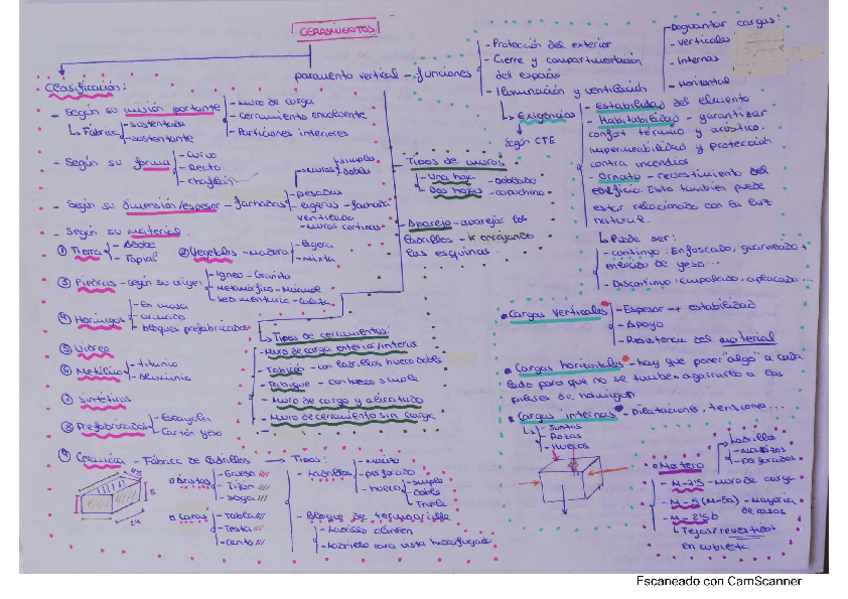 CERRAMIENTOS
paramento vertical - funciones
- Protección del exterior
- Cierre y compartimentación
del espacio
- Iluminación y ventilación
- aguantar cargas:
- verticales
- Internas
- Horizontal
Exigencias
según CTE
- Estabilidad del elemento
- Habitabilidad - garantizar
confort térmico y acústico.
impermeabilidad y protección
contra incendios
- Ornato - revestimiento del
edificio. Esto también puede
estar relacionado con su luz
natural.
Puede ser:
- continuo: Enfoscado, guarnecido +
enlucido de yeso...
- Discontinuo: empalado, aplacado...
Clasificación:
- Según su misión portante
- muro de carga
- Cerramiento envolvente
- Particiones interiores
Fábrica
- sustentada
- sustentante
- Según su forma
- Curvo
- Recto
- chaflán
- Según su dimensión/espesor - fachadas
- muros
- simples
- dobles
- pesadas
- ligeras - fachada
ventilada
- muros cortinas
- Según su material
① Tierra
- Adobe
- Tapial
② Vegetales - madera
- ligera
- mixta
③ Piedras - según su origen
- Ígneo - Granito
- Metamórfico - Mármol
- Sedimentario - Caliza
④ Hormigones
- En masa
- armado
- bloques prefabricados
⑤ Vidrio
⑥ Metálico
- titanio
- Aluminio
⑦ Sintéticas
⑧ Prefabricados
- Escayola
- Cartón yeso
⑨ Cerámica - Fábrica de ladrillos → Tipos:
Aristas
- Grueso
- Tizón
- Soga
Caras
- Tabla
- Testa
- Canto
5
24
- Ladrillos
- Macizo
- perforado
- hueco
- simple
- doble
- Triple
- Bloque de termoarcilla
- Ladrillo clinker
- Ladrillo cara vista hidrofugado
- Tipos de muros
- Una hoja - adoblado
- Dos hojas - capuchino
- Aparejo - aparejas los
ladrillos - ir encajando
las esquinas.
Tipos de cerramientos:
- Muro de carga exterior/interior
- Tabicón - con ladrillos hueco doble
- Tabique - con hueco simple
- Muro de carga y abrigado
- Muro de cerramiento sin carga
Cargas verticales
- Espesor → + estabilidad
- Apoyo
- Resistencia del material
Cargas horizontales - hay que poner "algo" a cada
lado para que no se tumbe - agarrarlo a los
pilares de hormigón
Cargas internas - Dilataciones, tensiones...
- Juntas
- Rozas
- Huecos
Mortero
- Ladrillos
- macizos
- perforados
- M-7'5 - muro de carga
- M-5 (M-5a) - mayoría
de casos
- M-2'5b
Tejas/revestidos
en cubierta
Escaneado con CamScanner